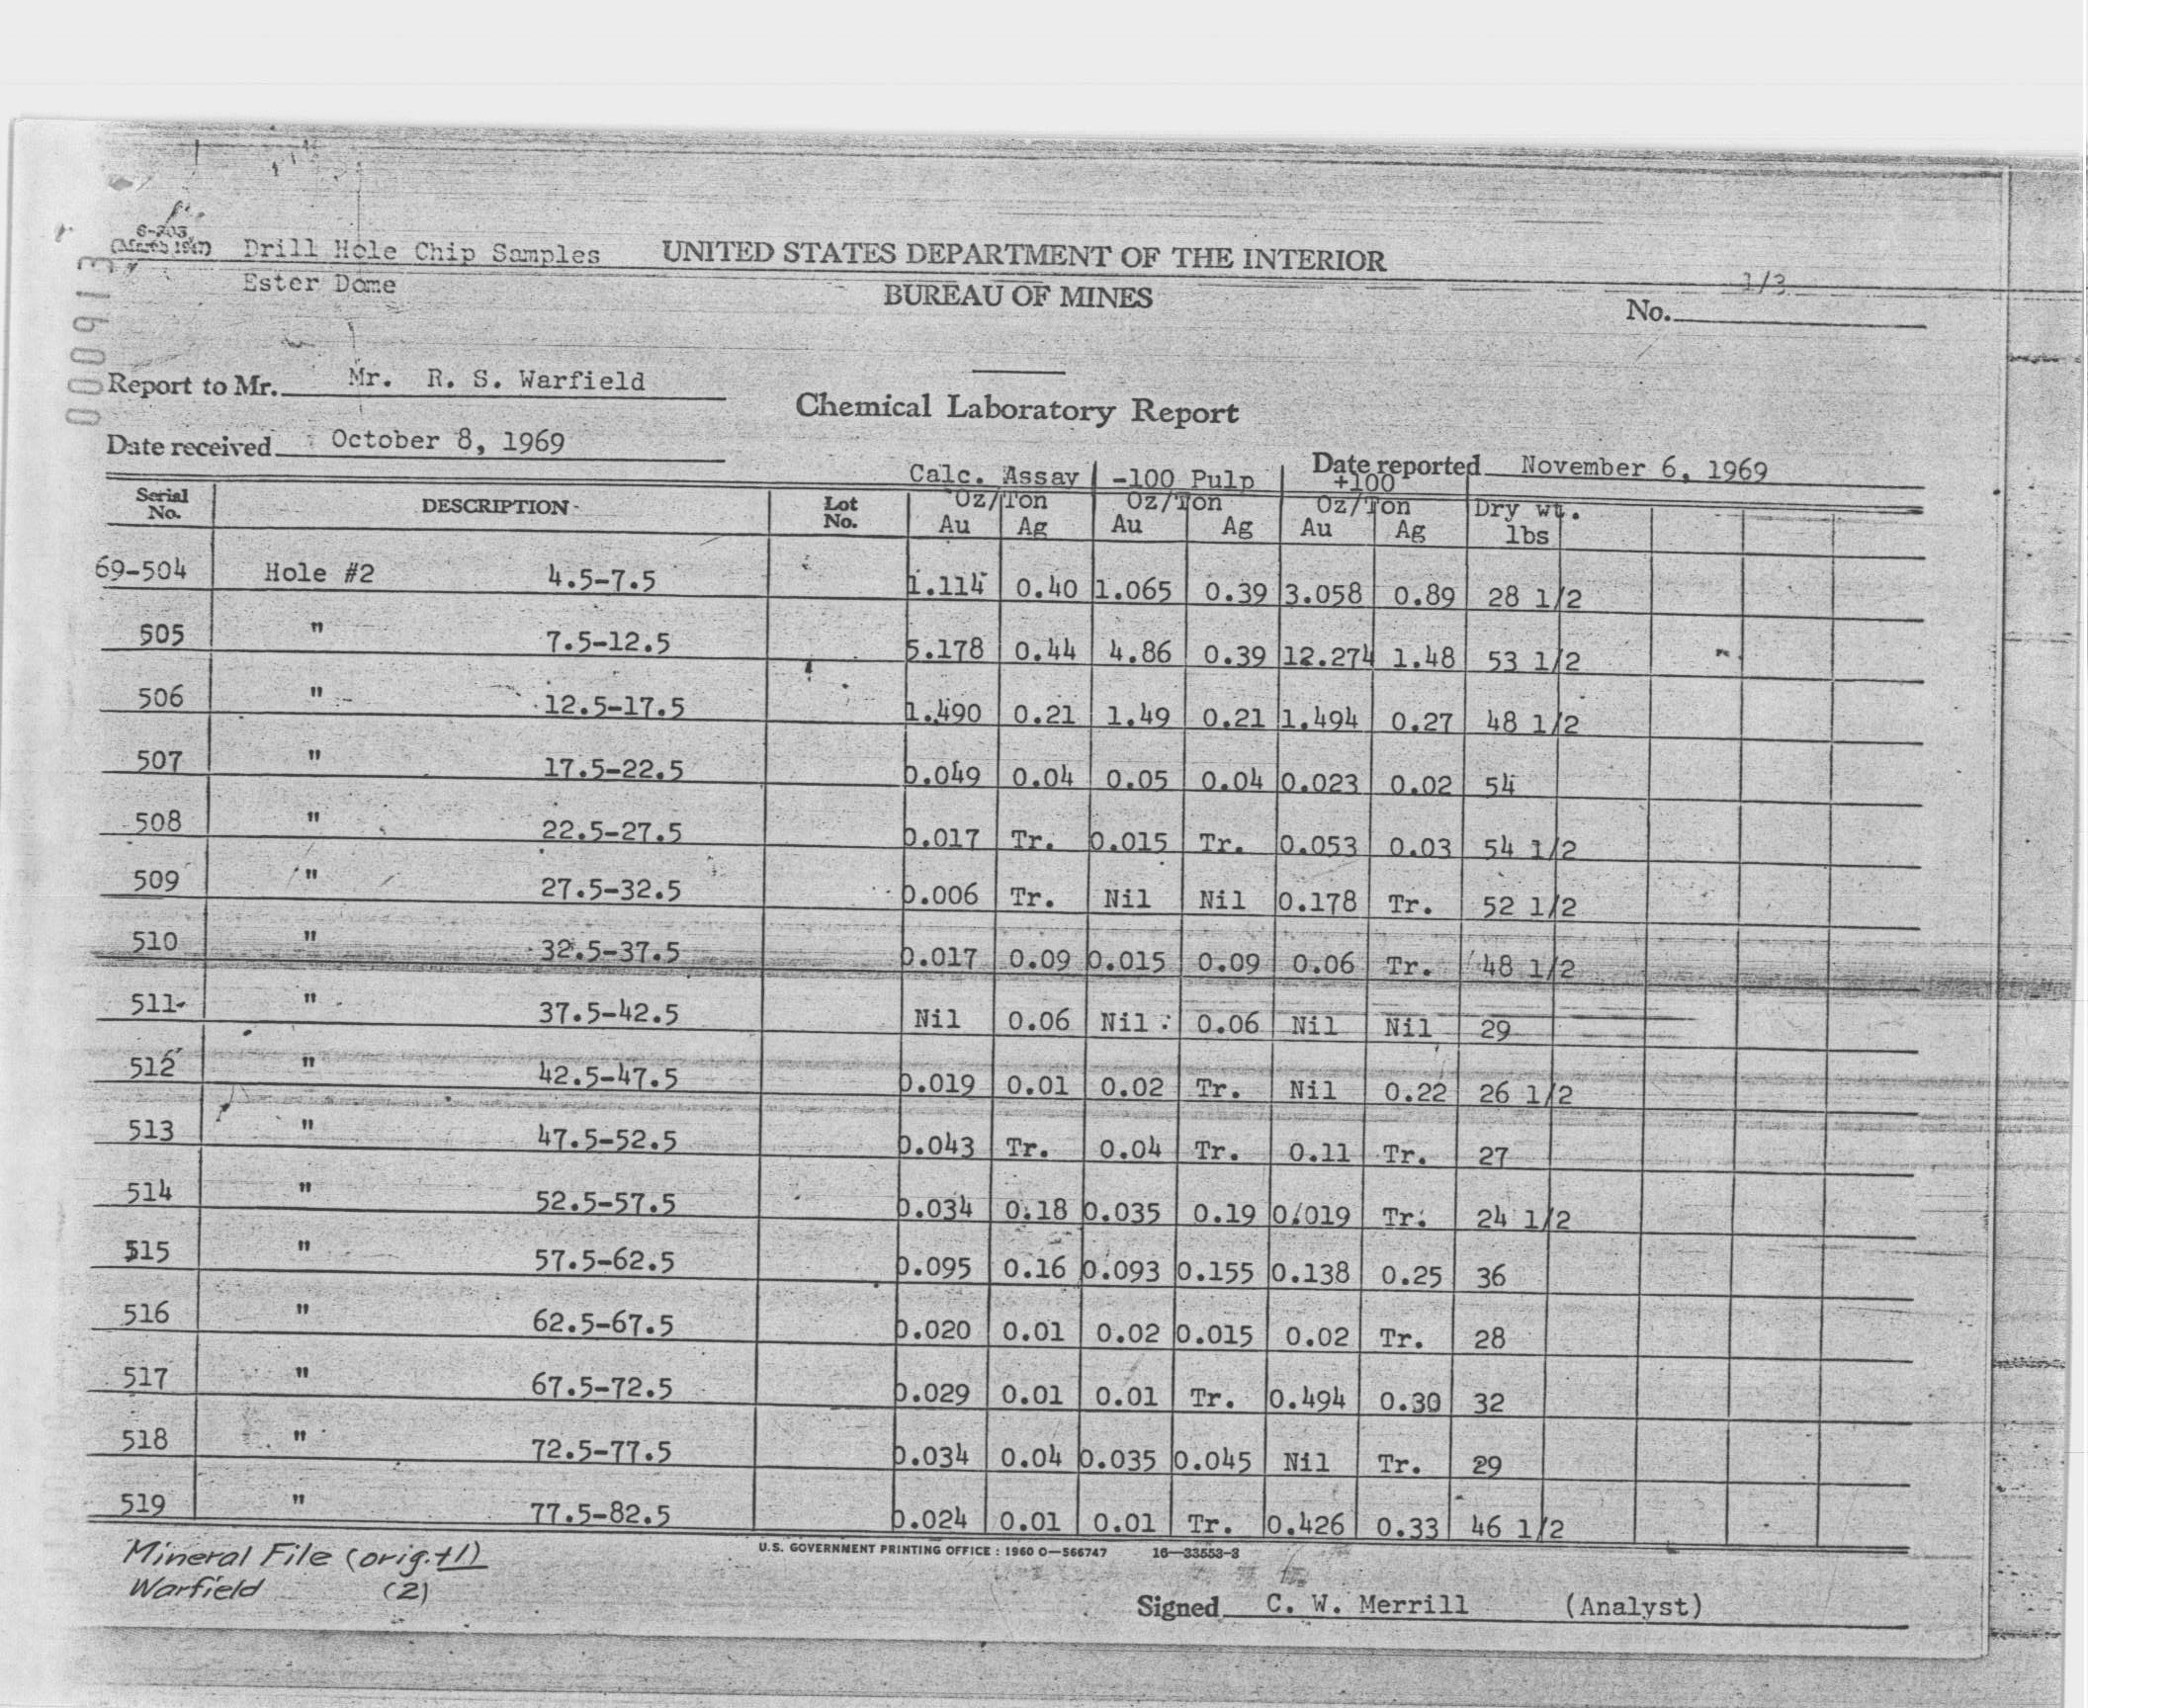 6-203
(March 1947)
Drill Hole Chip Samples
Ester Dome
UNITED STATES DEPARTMENT OF THE INTERIOR
BUREAU OF MINES
1/3
No.
000913
Report to Mr. Mr. R. S. Warfield
Chemical Laboratory Report
Date received October 8, 1969
Date reported November 6, 1969
Calc. Assay -100 Pulp +100
Serial No. DESCRIPTION Lot No. Oz/Ton Oz/Ton Oz/Ton Dry wt.
Au Ag Au Ag Au Ag lbs
69-504 Hole #2 4.5-7.5 1.114 0.40 1.065 0.39 3.058 0.89 28 1/2
505 " 7.5-12.5 5.178 0.44 4.86 0.39 12.274 1.48 53 1/2
506 " 12.5-17.5 1.490 0.21 1.49 0.21 1.494 0.27 48 1/2
507 " 17.5-22.5 0.049 0.04 0.05 0.04 0.023 0.02 54
508 " 22.5-27.5 0.017 Tr. 0.015 Tr. 0.053 0.03 54 1/2
509 " 27.5-32.5 0.006 Tr. Nil Nil 0.178 Tr. 52 1/2
510 " 32.5-37.5 0.017 0.09 0.015 0.09 0.06 Tr. 48 1/2
511 " 37.5-42.5 Nil 0.06 Nil 0.06 Nil Nil 29
512 " 42.5-47.5 0.019 0.01 0.02 Tr. Nil 0.22 26 1/2
513 " 47.5-52.5 0.043 Tr. 0.04 Tr. 0.11 Tr. 27
514 " 52.5-57.5 0.034 0.18 0.035 0.19 0.019 Tr. 24 1/2
515 " 57.5-62.5 0.095 0.16 0.093 0.155 0.138 0.25 36
516 " 62.5-67.5 0.020 0.01 0.02 0.015 0.02 Tr. 28
517 " 67.5-72.5 0.029 0.01 0.01 Tr. 0.494 0.30 32
518 " 72.5-77.5 0.034 0.04 0.035 0.045 Nil Tr. 29
519 " 77.5-82.5 0.024 0.01 0.01 Tr. 0.426 0.33 46 1/2
U.S. GOVERNMENT PRINTING OFFICE : 1960 O—566747 16—33553-3
Mineral File (orig.+1)
Warfield (2)
Signed C. W. Merrill (Analyst)